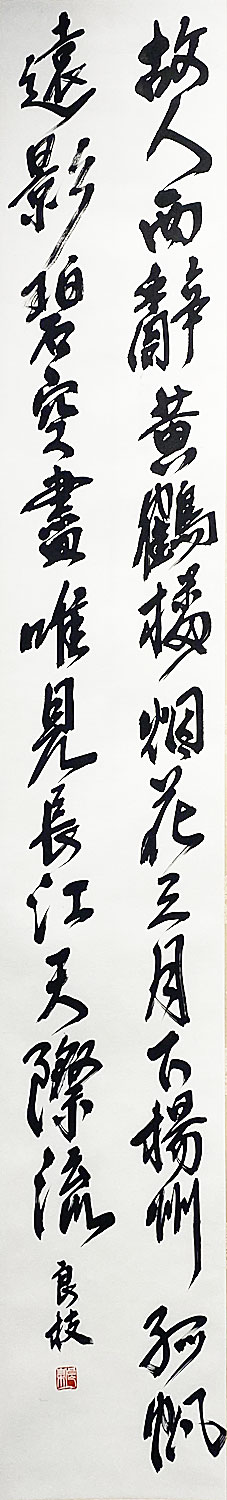 故人西辭黄鶴楼烟花三月下揚州孤帆
遠影碧空盡唯見長江天際流
良枝